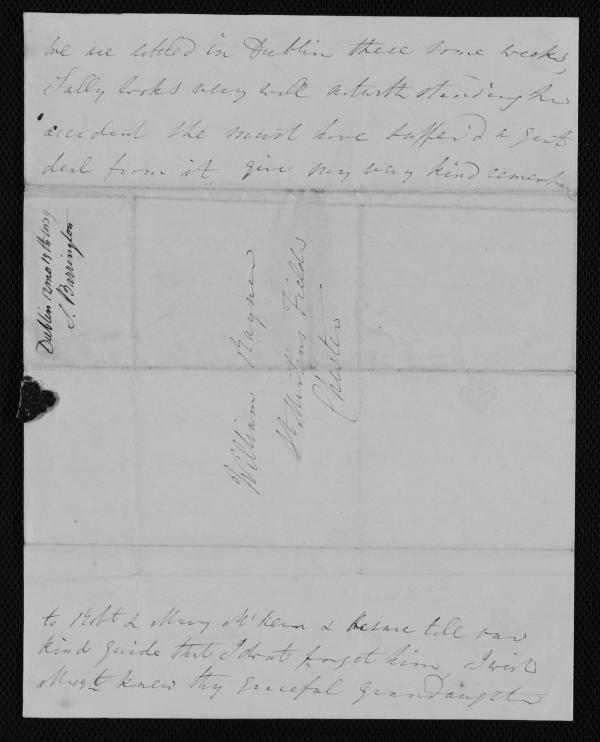 We are settled in Dublin these some weeks,
Sally looks very well notwithstanding her
accident she must have suffer'd a great
deal from it, give my very kind remembra
Dublin 12mo 19th
S. Barrington
William Rayner
St. Martins Fields
Chester
to Robt & Mary McKean & besure tell our
kind guide that I dont forget him, I wish
Margt knew thy graceful Granddaughter